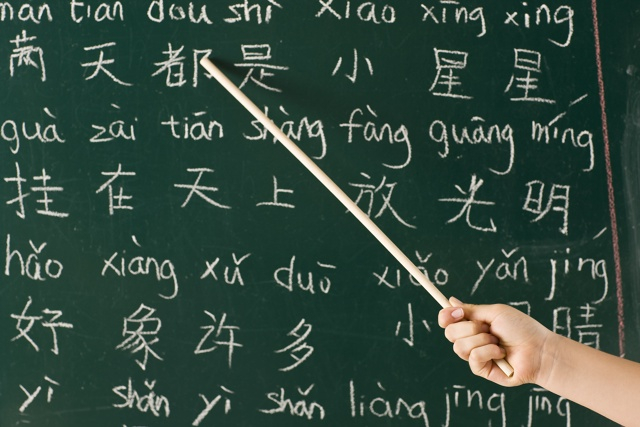 man tian dou shì xiǎo xīng xing
满 天 都 是 小 星 星
guà zài tiān shàng fàng guāng míng
挂 在 天 上 放 光 明
hǎo xiàng xǔ duō xiǎo yǎn jīng
好 象 许 多 小 睛
yì shǎn yì shǎn liàng jīng jīng